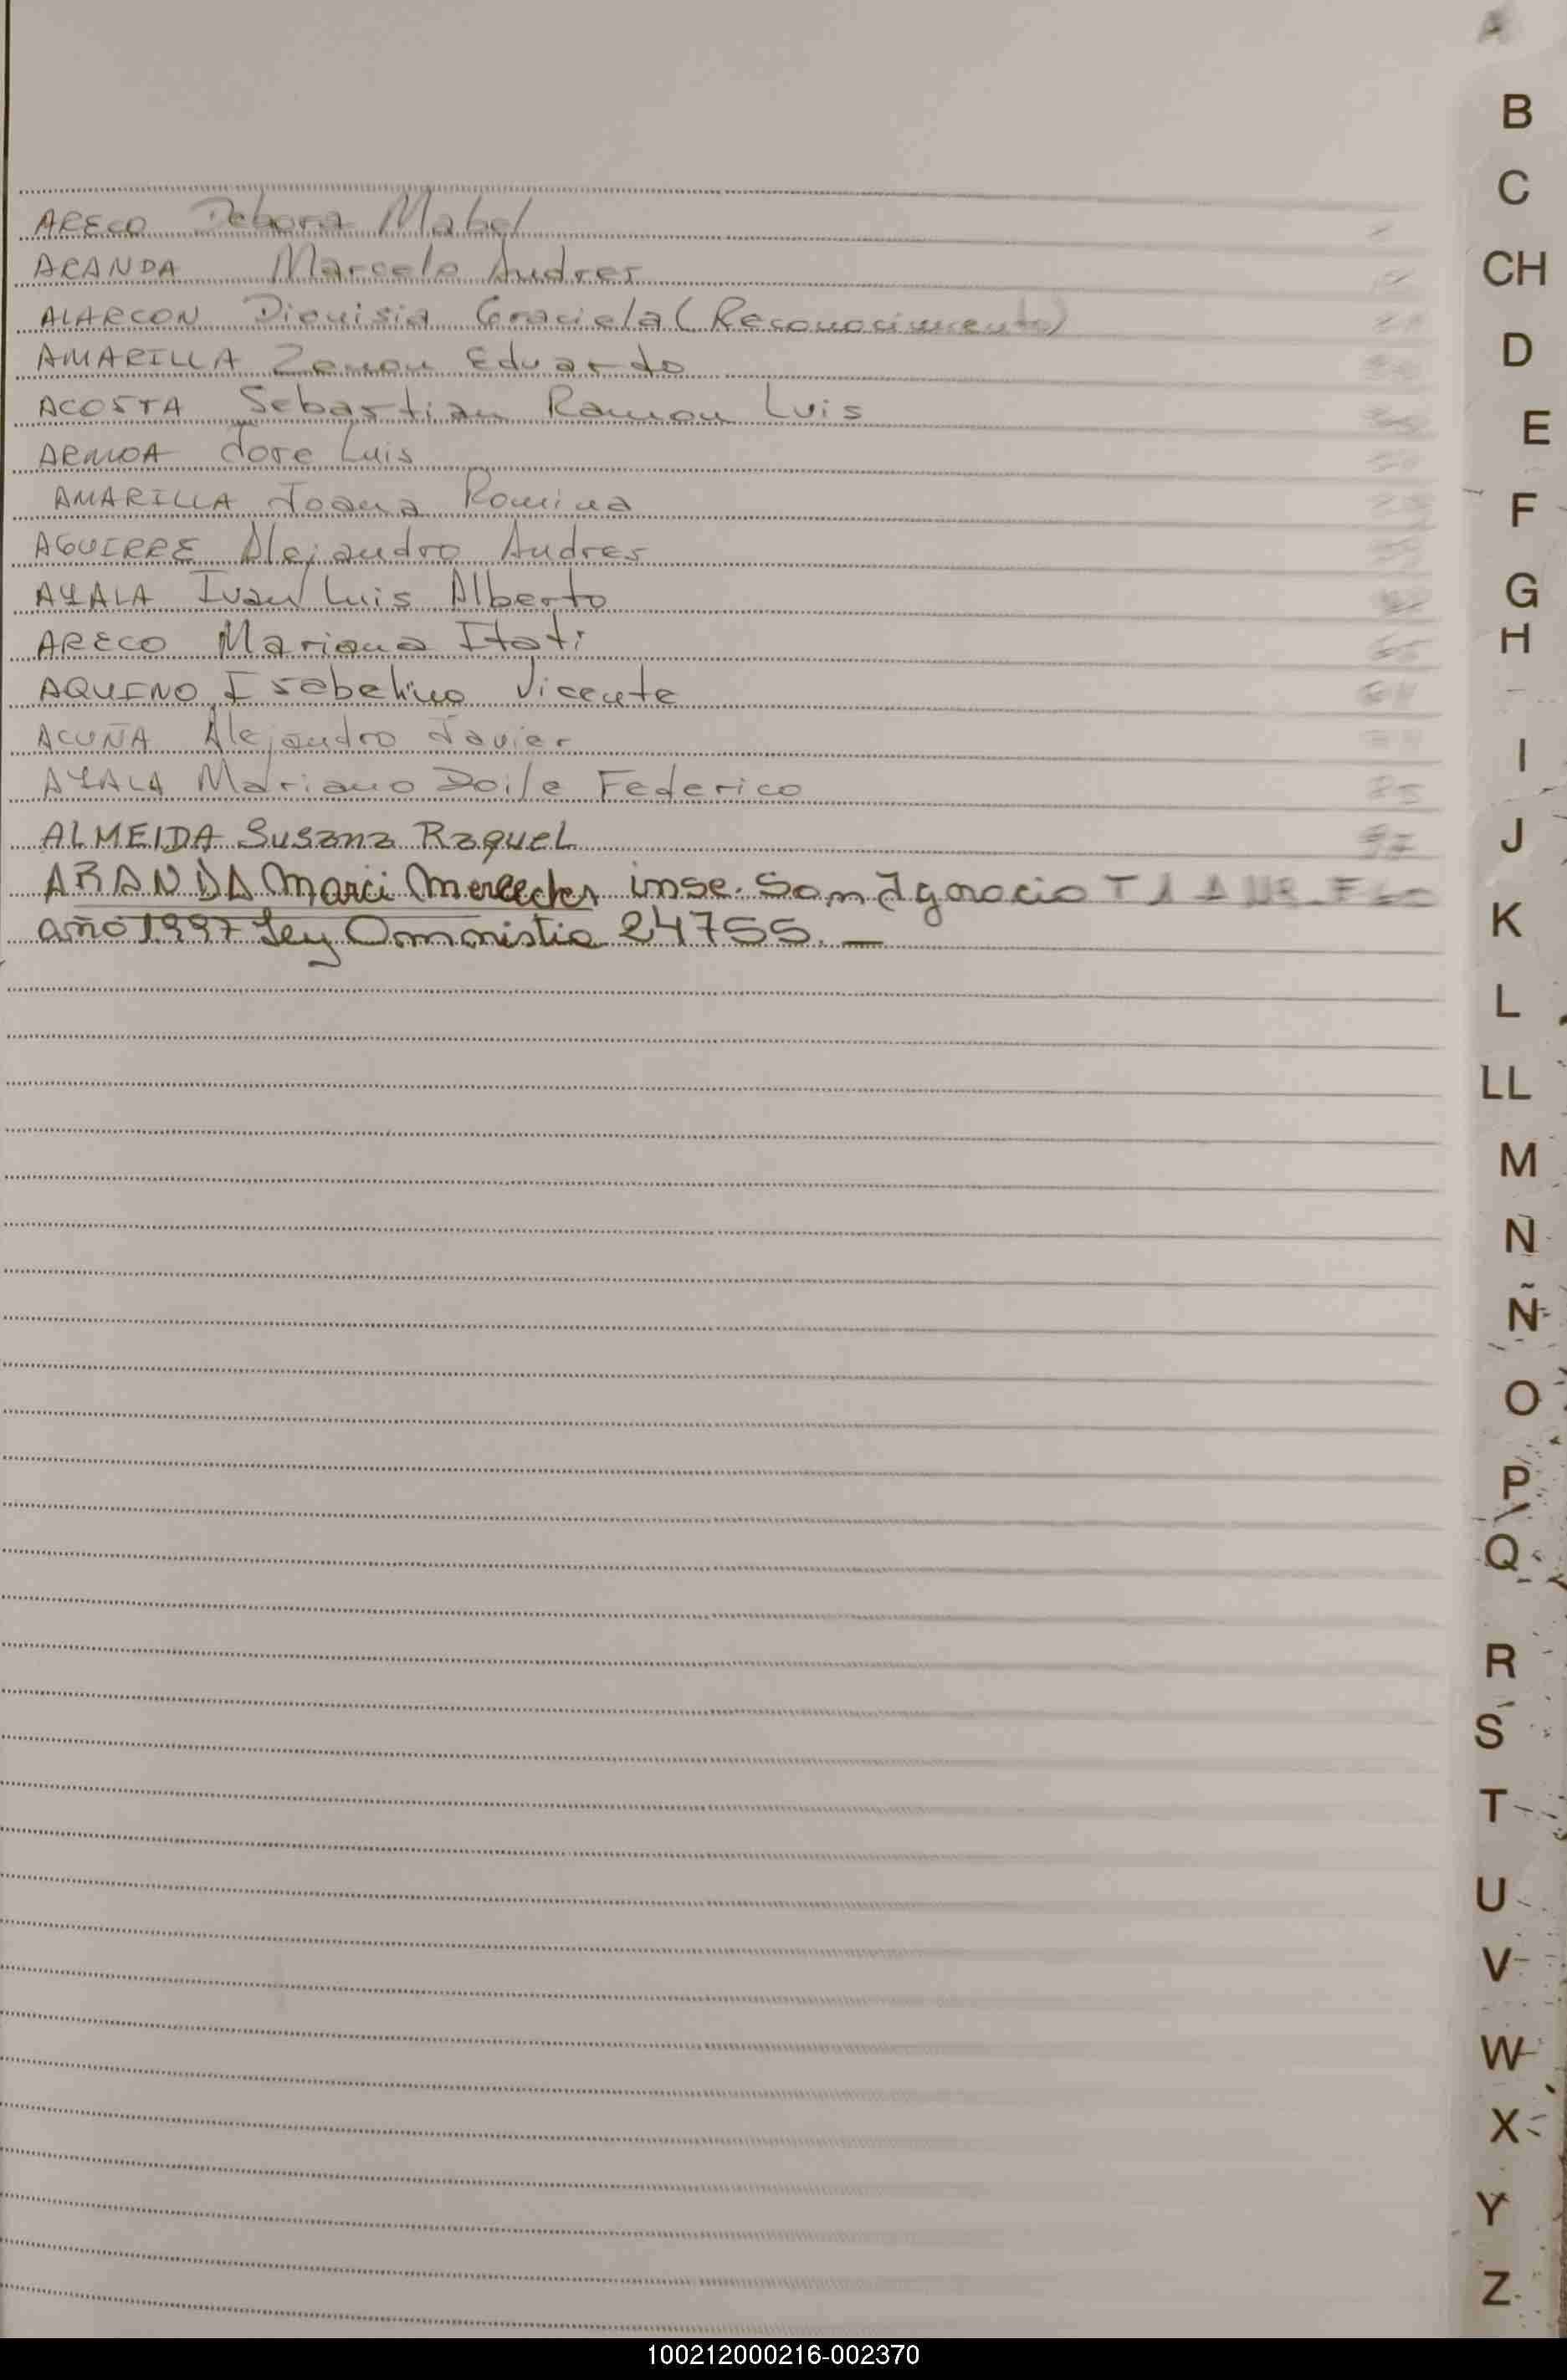 A
B
C
CH
D
E
F
G
H
I
J
K
L
LL
M
N
Ñ
O
P
Q
R
S
T
U
V
W
X
Y
Z
ARECO Debora Mabel
ARANDA Marcelo Andres
ALARCON Dionisia Graciela (Reconocimiento)
AMARILLA Zenon Eduardo
ACOSTA Sebastian Ramon Luis
ARMOA Jose Luis
AMARILLA Joana Romina
AGUIRRE Alejandro Andres
AYALA Ivan Luis Alberto
ARECO Mariana Itati 65
AQUINO Isabelino Vicente
ACUÑA Alejandro Javier
AYALA Mariano Doile Federico 85
ALMEIDA Susana Raquel 97
ARANDA Marci Mercedes insc. San Ignacio T 1 A
año 1997 Ley Omnistia 24755. —
100212000216-002370